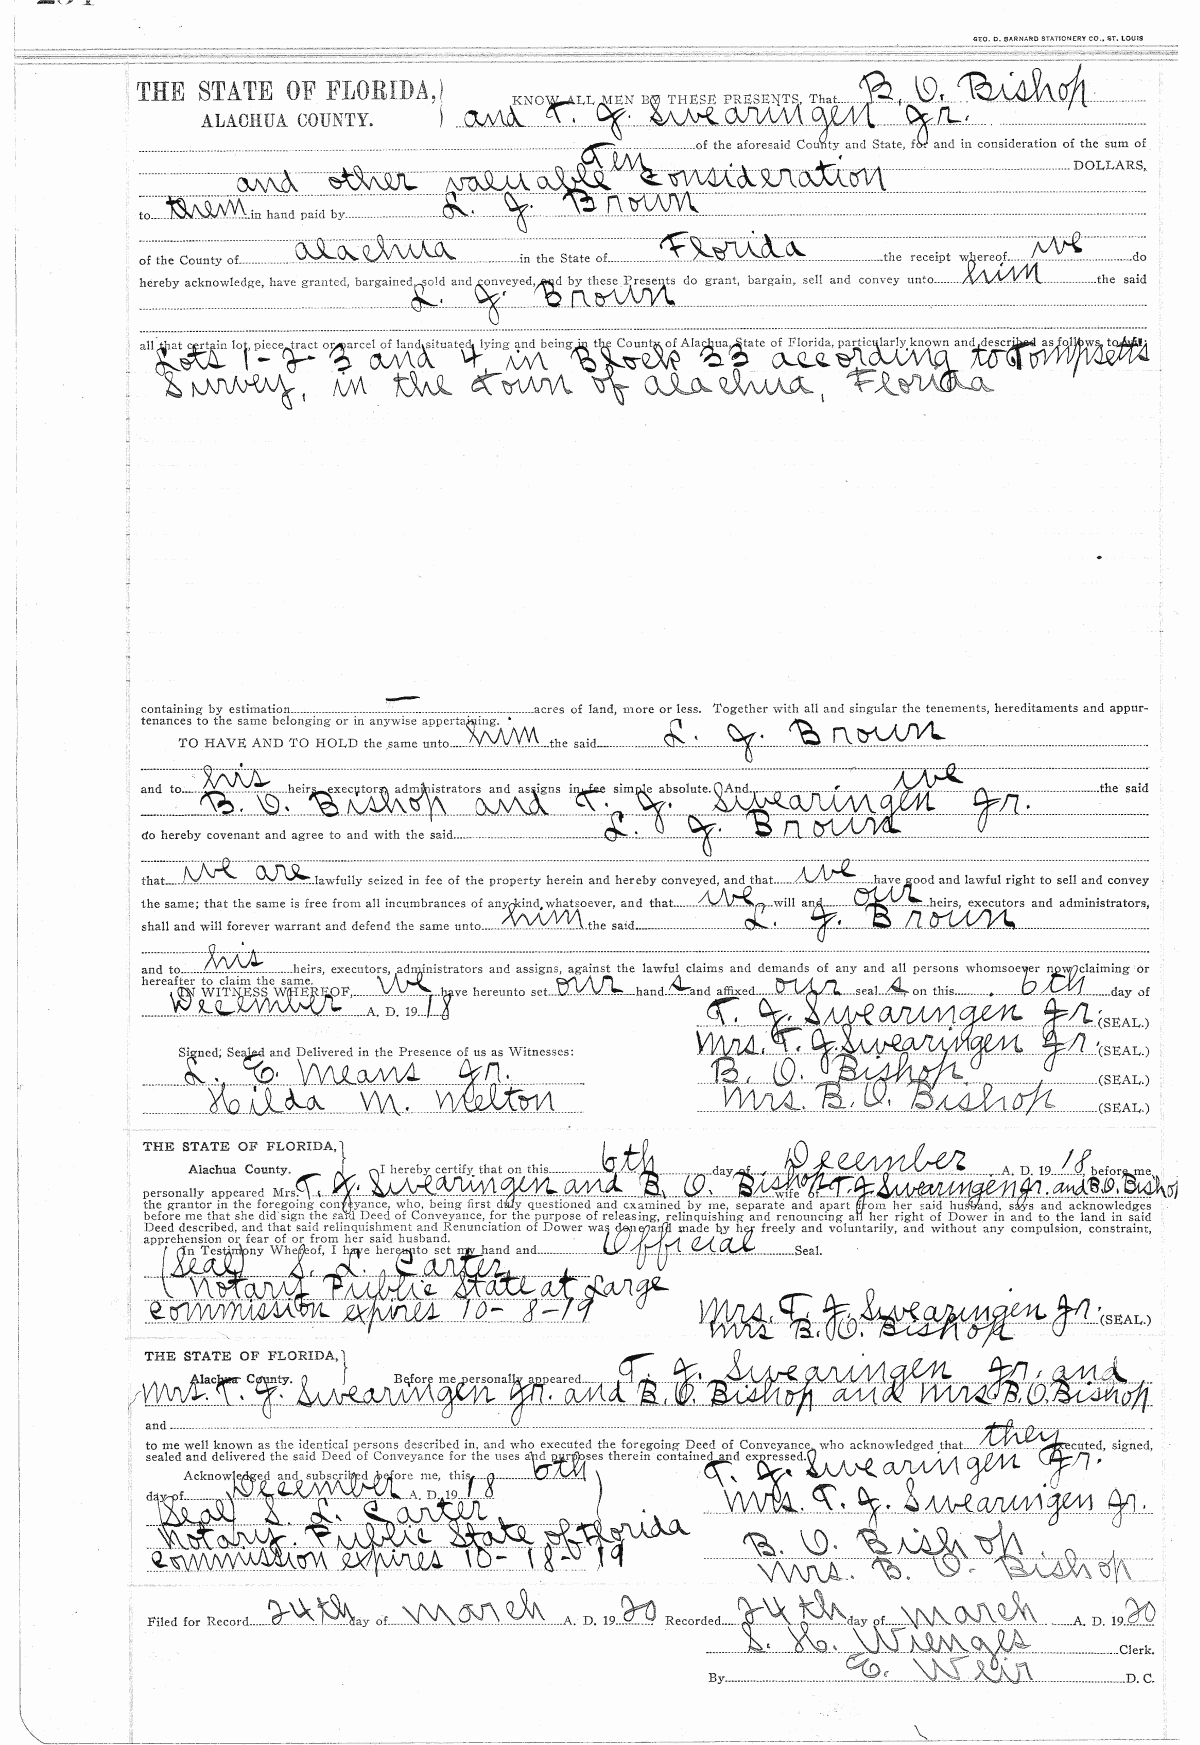 GEO. D. BARNARD STATIONERY CO., ST. LOUIS
THE STATE OF FLORIDA,
ALACHUA COUNTY.
KNOW ALL MEN BY THESE PRESENTS, That B. O. Bishop
and T. J. Swearingen Jr.
of the aforesaid County and State, for and in consideration of the sum of
Ten DOLLARS,
and other valuable consideration
to them in hand paid by L. J. Brown
of the County of Alachua in the State of Florida the receipt whereof we do
hereby acknowledge, have granted, bargained, sold and conveyed, and by these Presents do grant, bargain, sell and convey unto him the said
L. J. Brown
all that certain lot, piece, tract or parcel of land situated, lying and being in the County of Alachua, State of Florida, particularly known and described as follows, to-wit:
Lots 1-2-3 and 4 in Block 33 according to Tompsetts
Survey, in the town of Alachua, Florida
containing by estimation — acres of land, more or less. Together with all and singular the tenements, hereditaments and appur-
tenances to the same belonging or in anywise appertaining.
TO HAVE AND TO HOLD the same unto him the said L. J. Brown
and to his heirs, executors, administrators and assigns in fee simple absolute. And we the said
B. O. Bishop and T. J. Swearingen Jr.
do hereby covenant and agree to and with the said L. J. Brown
that we are lawfully seized in fee of the property herein and hereby conveyed, and that we have good and lawful right to sell and convey
the same; that the same is free from all incumbrances of any kind whatsoever, and that we will and our heirs, executors and administrators,
shall and will forever warrant and defend the same unto him the said L. J. Brown
and to his heirs, executors, administrators and assigns, against the lawful claims and demands of any and all persons whomsoever now claiming or
hereafter to claim the same.
IN WITNESS WHEREOF, we have hereunto set our hand s and affixed our seal s on this 6th day of
December A. D. 1918
T. J. Swearingen Jr. (SEAL.)
Mrs. T. J. Swearingen Jr. (SEAL.)
Signed, Sealed and Delivered in the Presence of us as Witnesses:
L. E. Means Jr. B. O. Bishop (SEAL.)
Hilda M. Melton Mrs. B. O. Bishop (SEAL.)
THE STATE OF FLORIDA,
Alachua County. I hereby certify that on this 6th day of December A. D. 1918 before me
personally appeared Mrs. T. J. Swearingen and B. O. Bishop wife of T. J. Swearingen Jr. and B. O. Bishop
the grantor in the foregoing conveyance, who, being first duly questioned and examined by me, separate and apart from her said husband, says and acknowledges
before me that she did sign the said Deed of Conveyance, for the purpose of releasing, relinquishing and renouncing all her right of Dower in and to the land in said
Deed described, and that said relinquishment and Renunciation of Dower was done and made by her freely and voluntarily, and without any compulsion, constraint,
apprehension or fear of or from her said husband.
In Testimony Whereof, I have hereunto set my hand and Official Seal.
(Seal) S. L. Carter
Notary Public State at Large
Commission expires 10-8-19 Mrs. T. J. Swearingen Jr. (SEAL.)
Mrs B. O. Bishop
THE STATE OF FLORIDA,
Alachua County. Before me personally appeared T. J. Swearingen Jr. and
Mrs. T. J. Swearingen Jr. and B. O. Bishop and Mrs B. O. Bishop
and
to me well known as the identical persons described in, and who executed the foregoing Deed of Conveyance, who acknowledged that they executed, signed,
sealed and delivered the said Deed of Conveyance for the uses and purposes therein contained and expressed.
Acknowledged and subscribed before me, this 6th T. J. Swearingen Jr.
day of December A. D. 1918
Seal) S. L. Carter Mrs. T. J. Swearingen Jr.
Notary Public State of Florida B. O. Bishop
Commission expires 10-18-19 Mrs. B. O. Bishop
Filed for Record 24th day of March A. D. 1920 Recorded 24th day of March A. D. 1920
S. H. Wienges Clerk.
By E. Weir D. C.